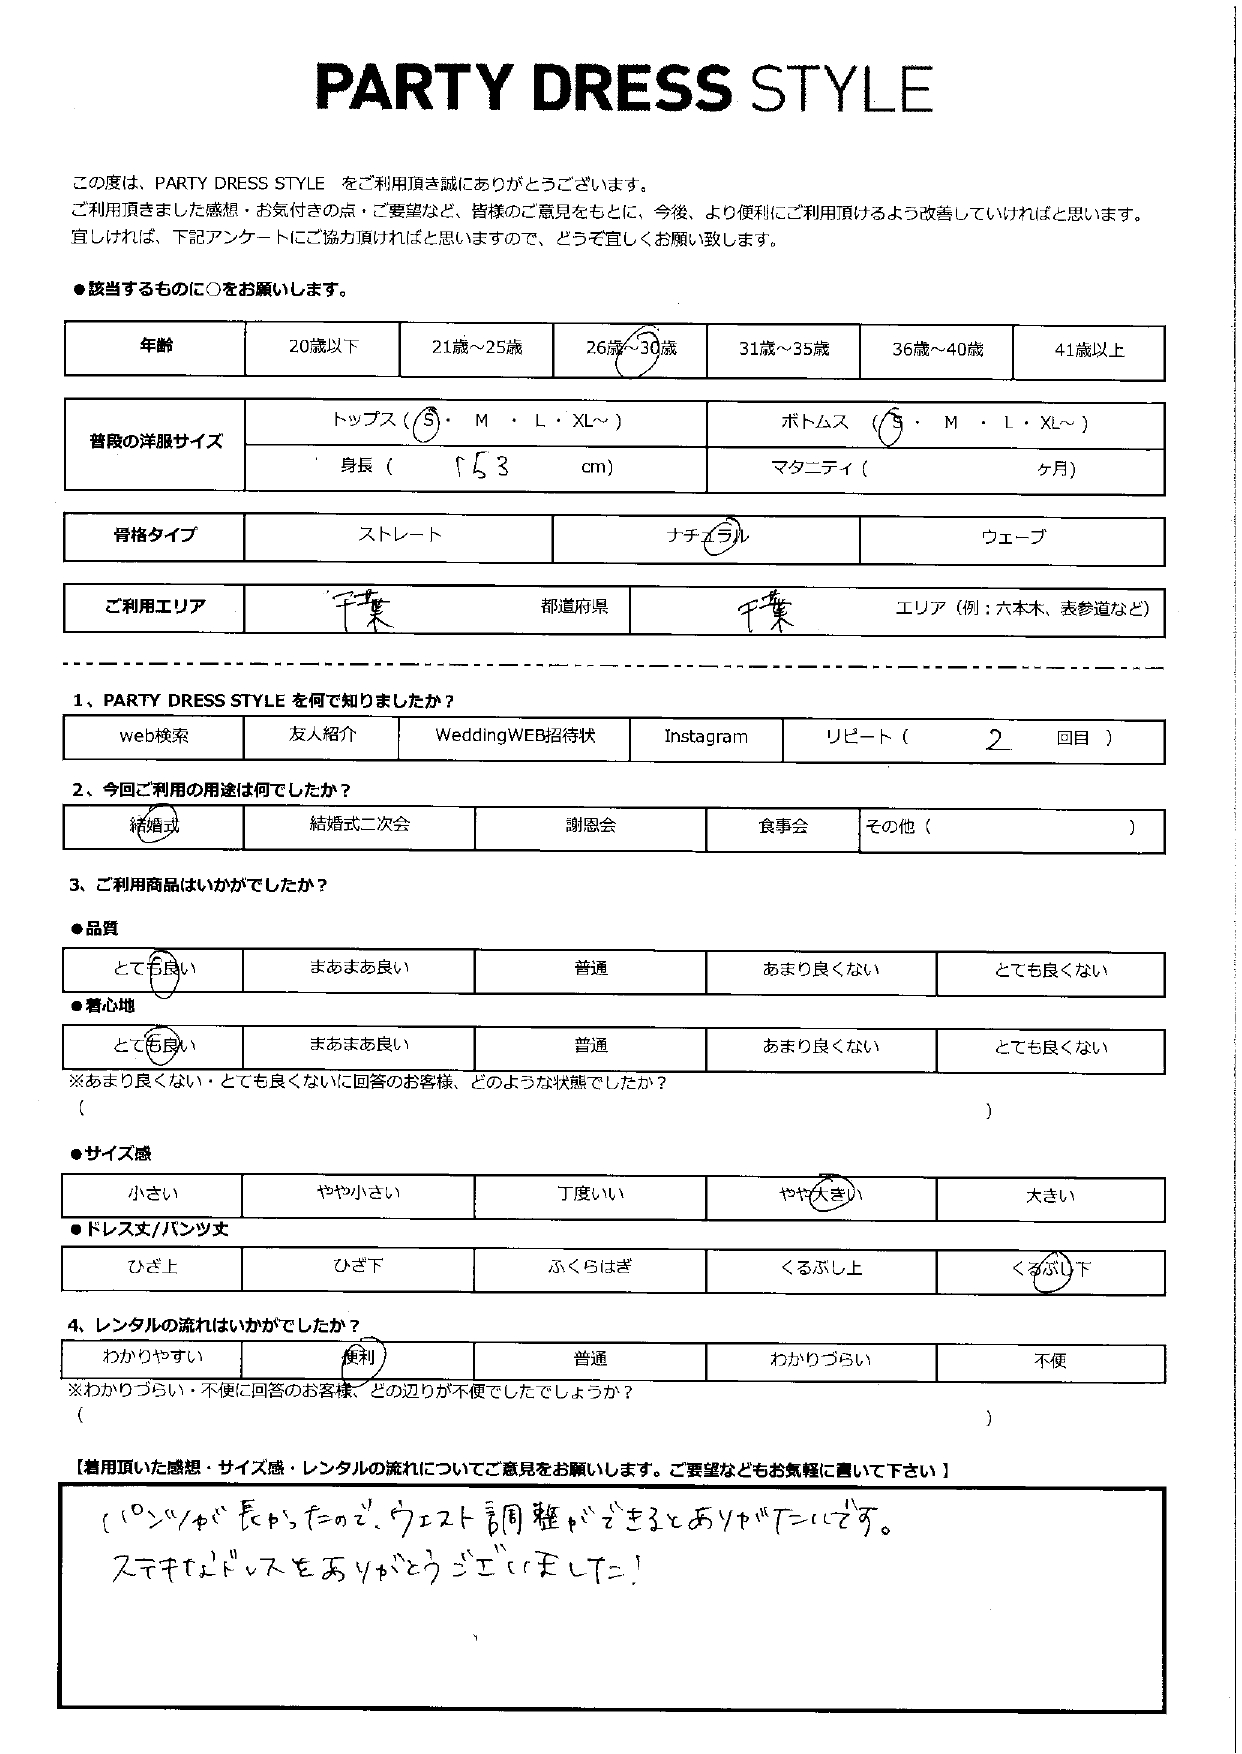 PARTY DRESS STYLE
この度は、PARTY DRESS STYLE をご利用頂き誠にありがとうございます。
ご利用頂きました感想・お気付きの点・ご要望など、皆様のご意見をもとに、今後、より便利にご利用頂けるよう改善していければと思います。
宜しければ、下記アンケートにご協力頂ければと思いますので、どうぞ宜しくお願い致します。
●該当するものに○をお願いします。
年齢 20歳以下 21歳～25歳 26歳～30歳 31歳～35歳 36歳～40歳 41歳以上
普段の洋服サイズ トップス (S・ M ・ L・XL～) ボトムス (S・ M ・ L・XL～)
身長 ( 153 cm) マタニティ ( ヶ月)
骨格タイプ ストレート ナチュラル ウェーブ
ご利用エリア 千葉 都道府県 千葉 エリア（例：六本木、表参道など）
1、PARTY DRESS STYLE を何で知りましたか？
web検索 友人紹介 WeddingWEB招待状 Instagram リピート ( 2 回目 )
2、今回ご利用の用途は何でしたか？
結婚式 結婚式二次会 謝恩会 食事会 その他 ( )
3、ご利用商品はいかがでしたか？
●品質
とても良い まあまあ良い 普通 あまり良くない とても良くない
●着心地
とても良い まあまあ良い 普通 あまり良くない とても良くない
※あまり良くない・とても良くないに回答のお客様、どのような状態でしたか？
( )
●サイズ感
小さい やや小さい 丁度いい やや大きい 大きい
●ドレス丈/パンツ丈
ひざ上 ひざ下 ふくらはぎ くるぶし上 くるぶし下
4、レンタルの流れはいかがでしたか？
わかりやすい 便利 普通 わかりづらい 不便
※わかりづらい・不便に回答のお客様、どの辺りが不便でしたでしょうか？
( )
【着用頂いた感想・サイズ感・レンタルの流れについてご意見をお願いします。ご要望などもお気軽に書いて下さい】
パンツが長かったので、ウエスト調整ができるとありがたいです。
ステキなドレスをありがとうございました！